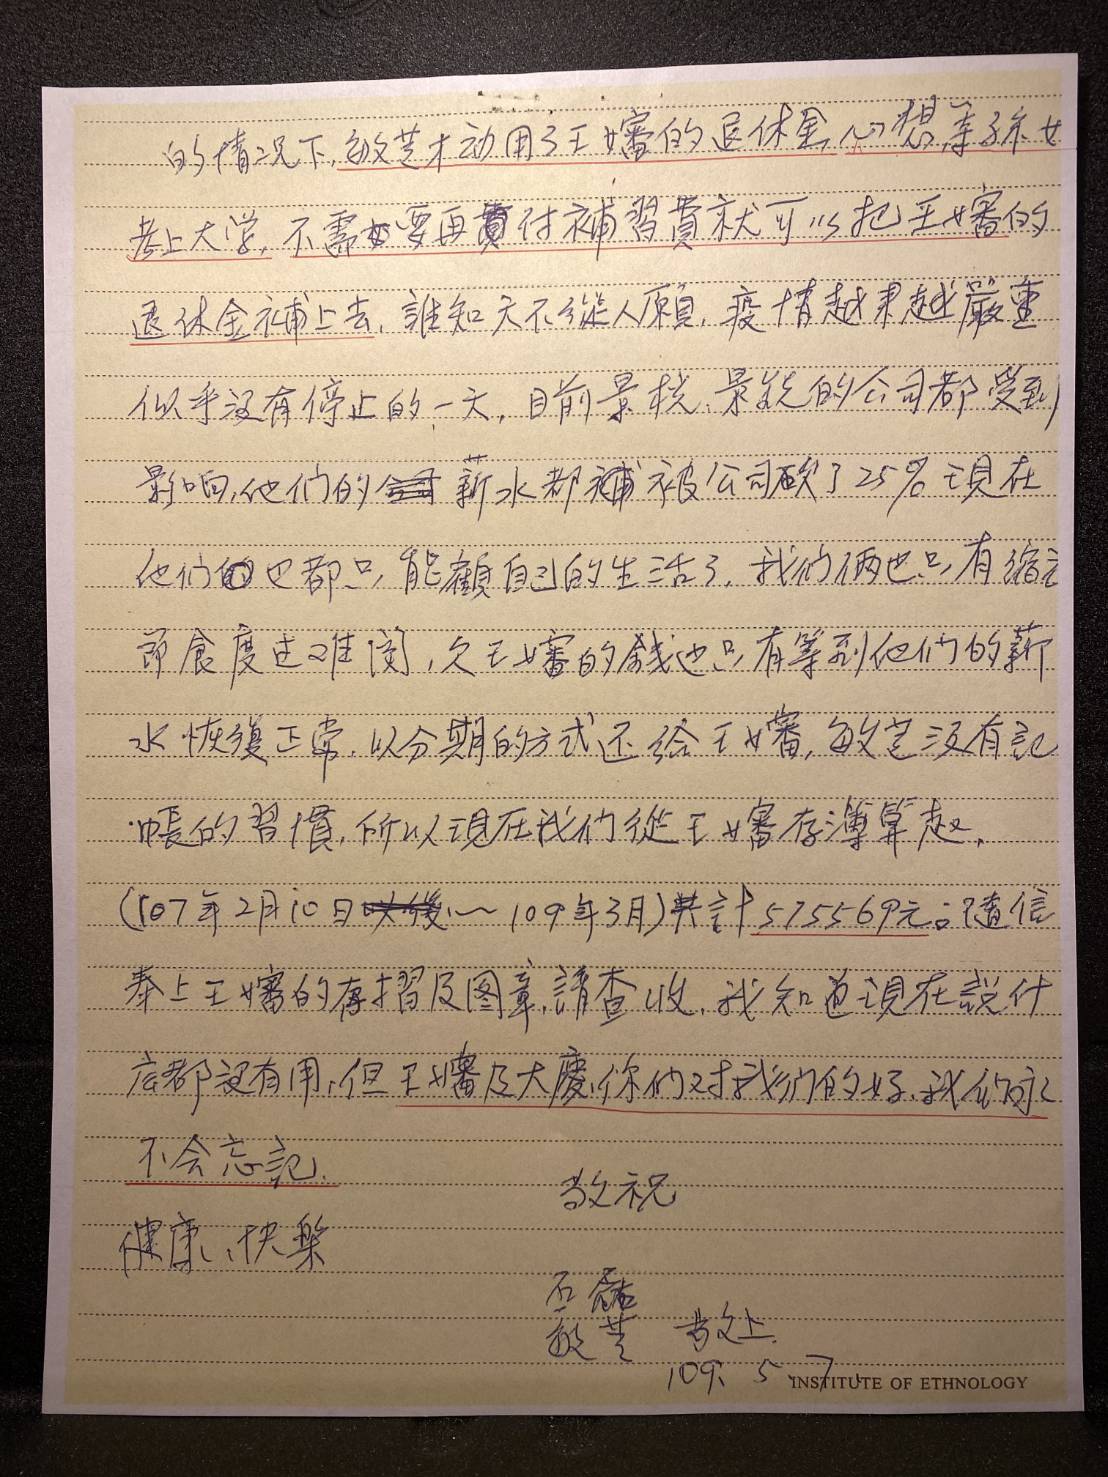 的情况下,敏芝才动用了王嬸的退休金,心想等孫女
考上大学,不需要再付補習費就可以把王嬸的
退休金補上去,誰知天不從人願,疫情越来越嚴重
似乎沒有停止的一天,目前景杭、景銳的公司都受到
影响,他们的薪水都被公司砍了25%現在
他们也都只能顧自己的生活了,我们俩也只有縮衣
節食度过难関,欠王嬸的錢也只有等到他们的薪
水恢復正常,以分期的方式还给王嬸,敏芝沒有記
帳的習慣,所以現在我们從王嬸存簿算起,
(107年2月10日~109年3月)共計575569元。隨信
奉上王嬸的存摺及图章,請查收,我知道現在說什
広都沒有用,但王嬸及大慶,你们对我们的好,我们永
不会忘記.
敬祝
健康、快樂
石磊
敏芝 敬上.
109. 5. 7.
INSTITUTE OF ETHNOLOGY